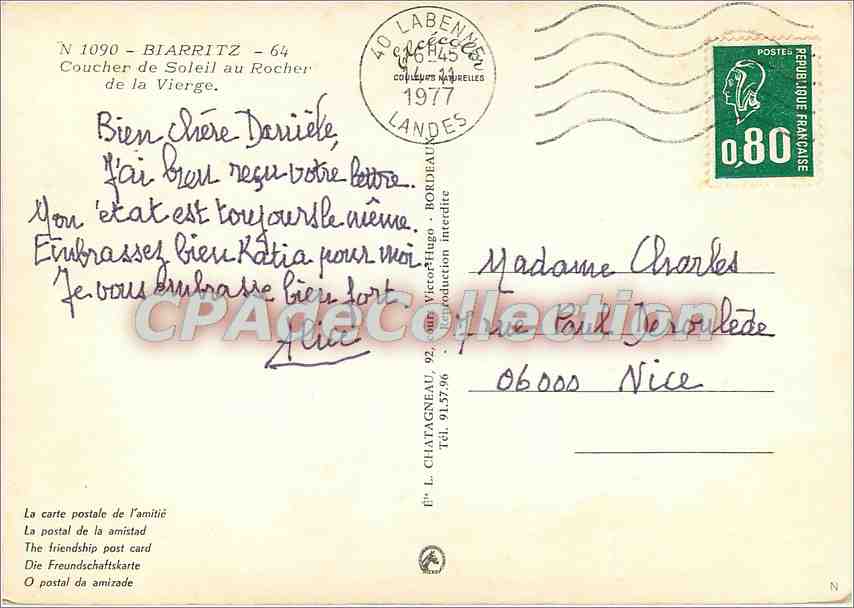 N 1090 - BIARRITZ - 64
Coucher de Soleil au Rocher
de la Vierge.
Bien chère Danièle,
J'ai bien reçu votre lettre.
Mon état est toujours le même.
Embrassez bien Katia pour moi.
Je vous embrasse bien fort
Alice
40 LABENNE
16H45
14-11
1977
LANDES
COULEURS NATURELLES
POSTES
REPUBLIQUE FRANÇAISE
0,80
Éts L. CHATAGNEAU, 92, cours Victor-Hugo - BORDEAUX
Tél. 91.57.96 - Reproduction interdite
Madame Charles
7 rue Paul Deroulède
06000 Nice
CPAdeCollection
La carte postale de l'amitié
La postal de la amistad
The friendship post card
Die Freundschaftskarte
O postal da amizade
N